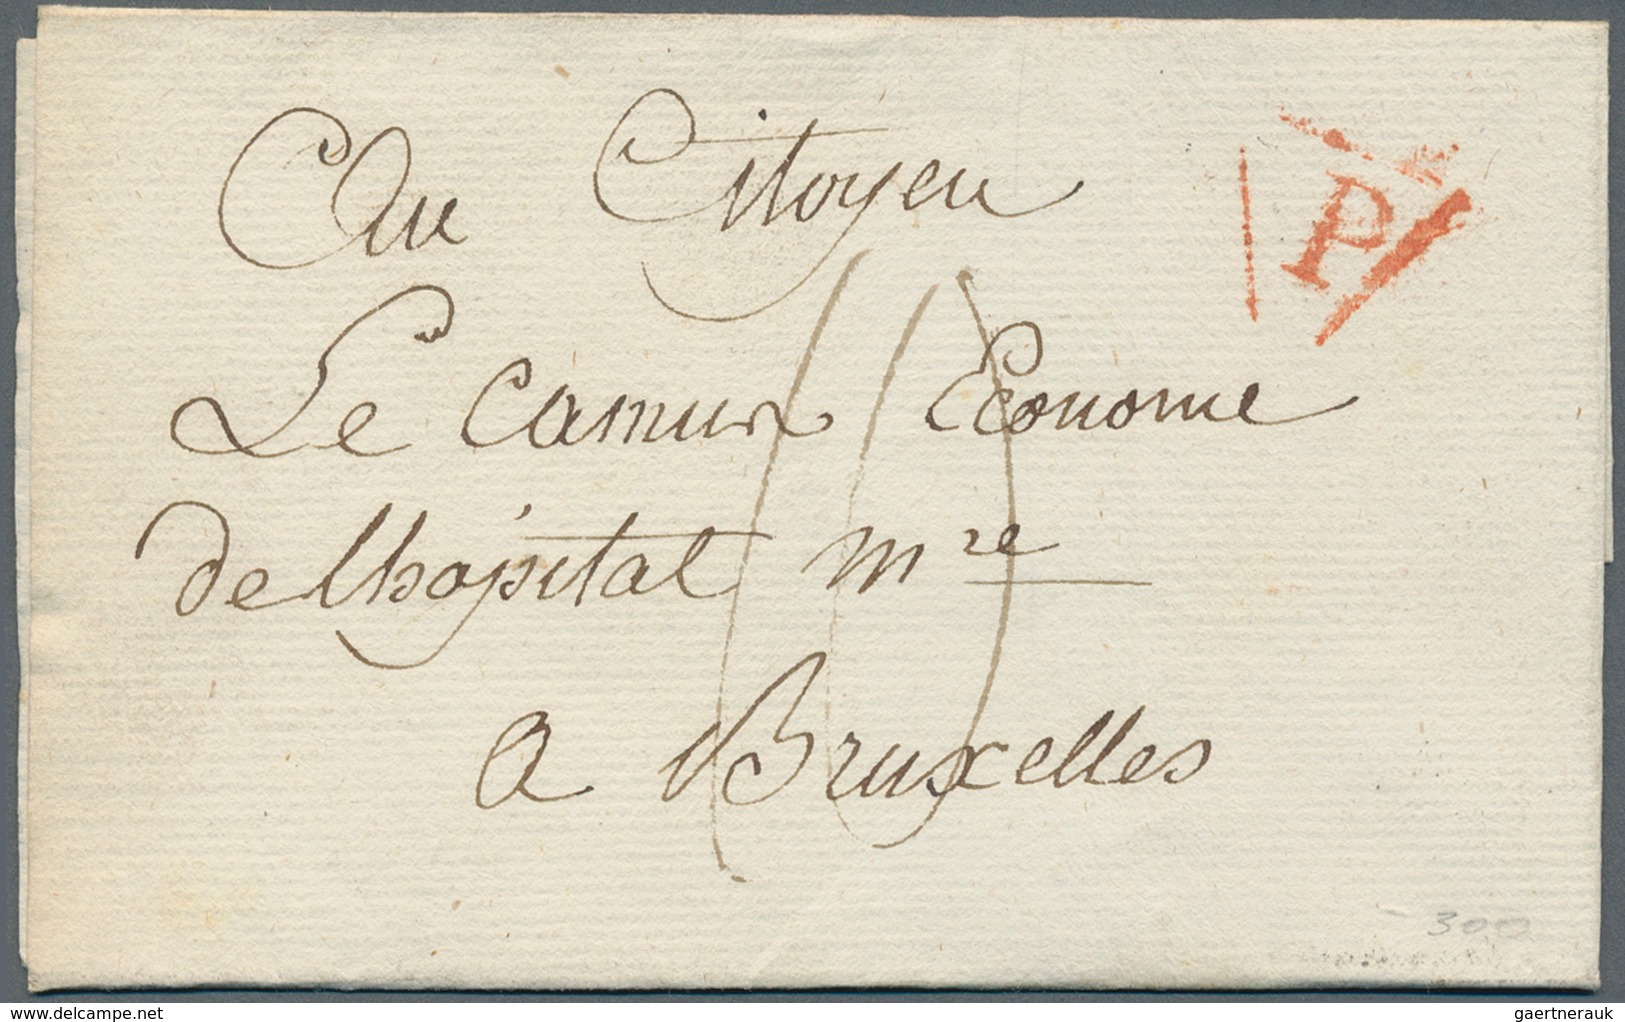 Au Citoyen
P
Le Camux Econome
de lhopital mre
a Bruxelles
300
delcampe.net
gaertnerauk